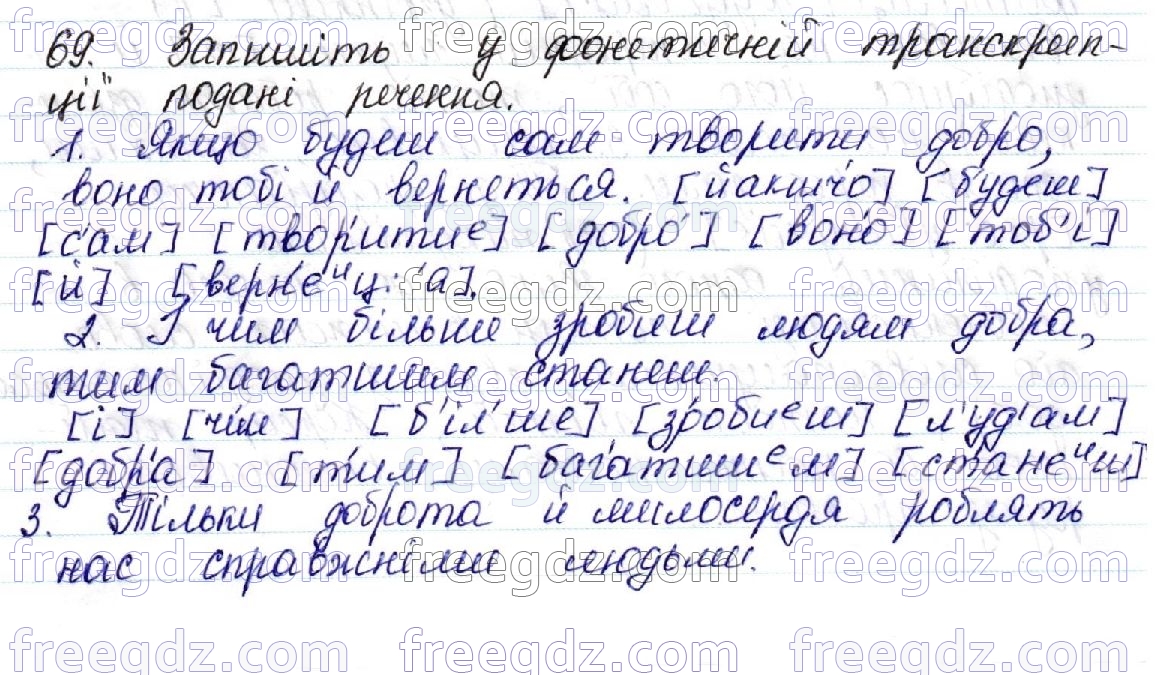 69. Запишіть у фонетичній транскрип-
ції подані речення.
1. Якщо будеш сам творити добро,
воно тобі й вернеться. [йакшчо] [будеш]
[сам] [творитиᵉ] [добро] [воно] [тоб'і]
[й] [верне́ᶦц:'а].
2. І чим більше зробиш людям добра,
тим багатшим станеш.
[і] [чим] [б'іл'ше] [зробиᵉш] [л'уд'ам]
[добра] [тим] [багатшиᵉм] [станеᶦш]
3. Тільки доброта й милосердя роблять
нас справжніми людьми.
freegdz.com